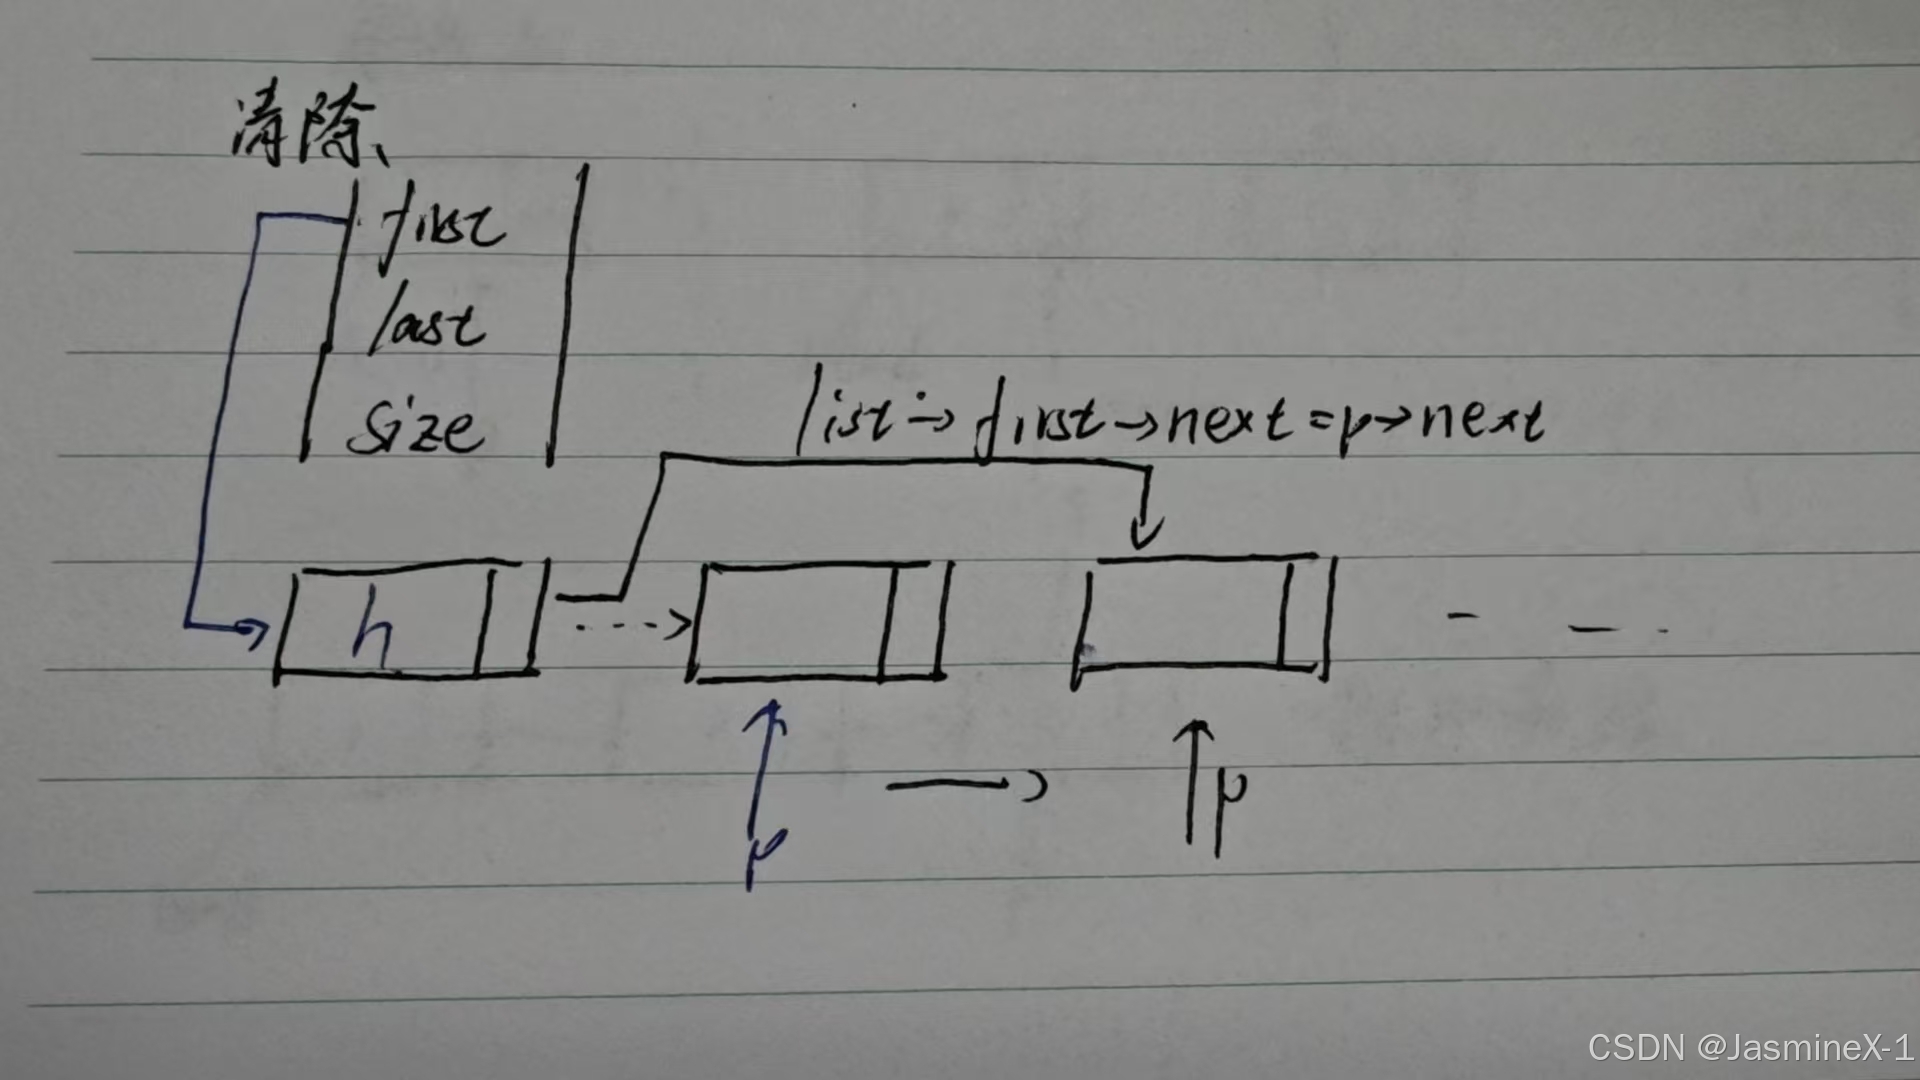 清除、
first
last
size
list→first→next=p→next
h
p
p
CSDN @JasmineX-1